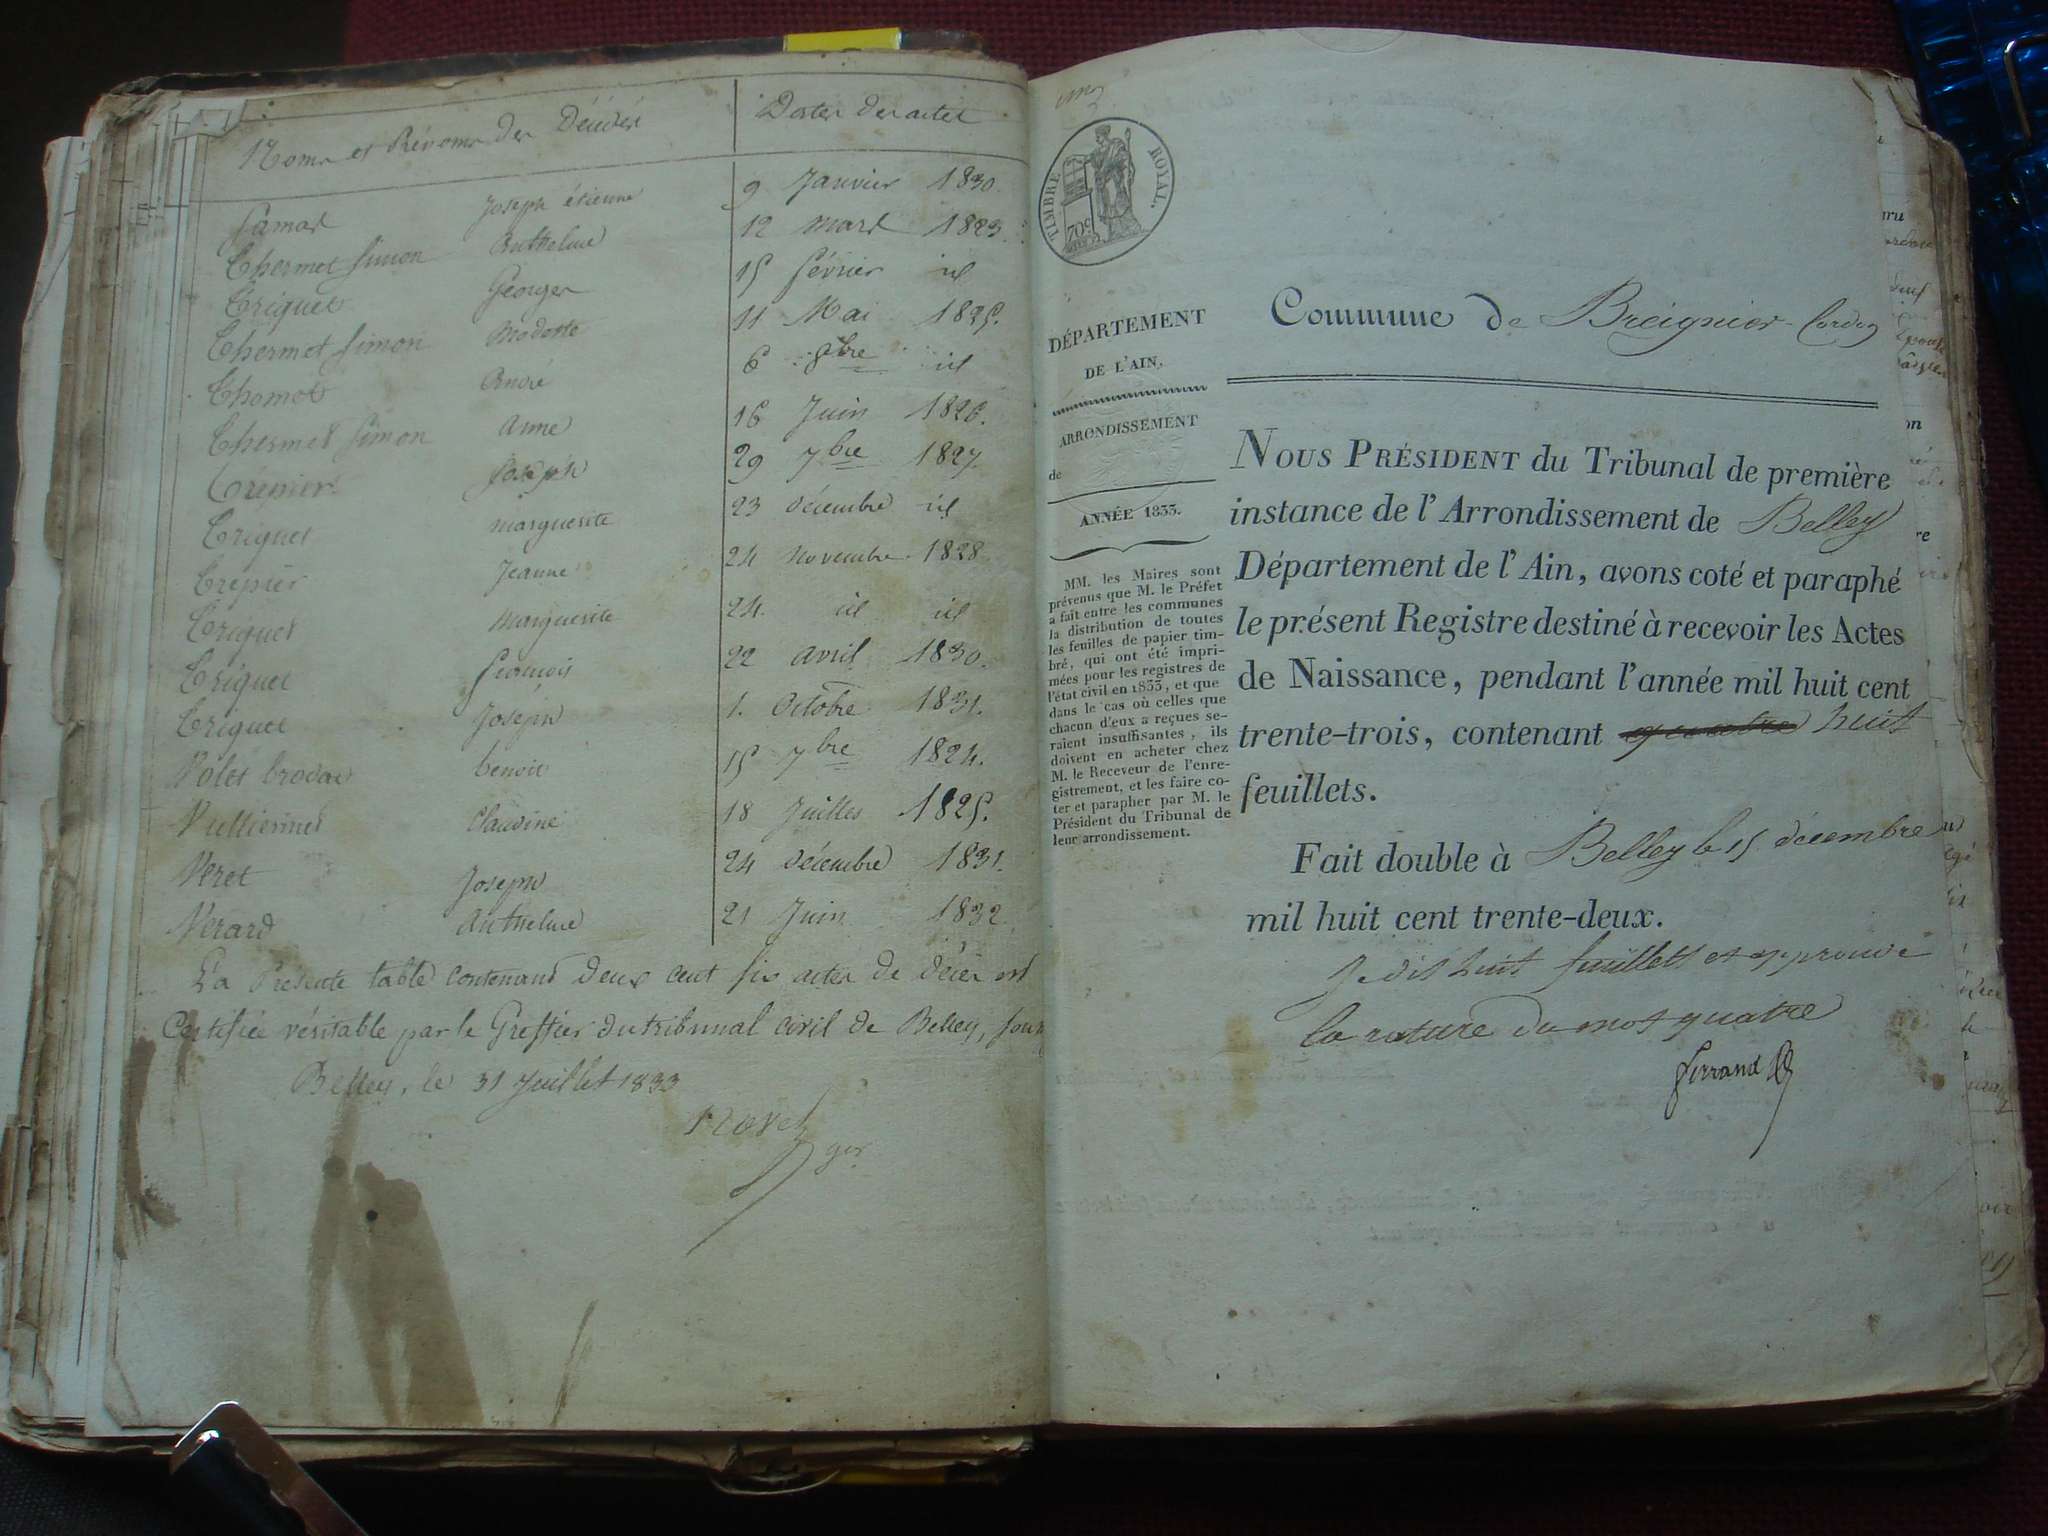 Noms et Prénoms des Décédés Dates des actes
Samas Joseph étienne 9 Janvier 1830.
Thermet Simon Anthelme 12 mars 1823.
Triquet Georges 15 février id
Thermet Simon Modeste 11 Mai 1825.
Thomet André 6 8bre id
Thermet Simon Anne 16 Juin 1826.
Trepier Joseph 29 7bre 1827.
Triquet marguerite 23 décembre id
Trepier Jeanne 24 Novembre 1828
Triquet Marguerite 24. id id
Triquet François 22 avril 1830.
Triquet Joseph 1. Octobre 1831.
Volet brodat benoit 15 7bre 1824.
Vulliermet Claudine 18 Juillet 1825.
Veret Joseph 24 décembre 1831.
Verard Anthelme 21 Juin 1832
La Présente table contenant deux cent six actes de décès est
Certifiée véritable par le Greffier du tribunal civil de Belley,
Belley, le 31 Juillet 1833
ger
TIMBRE ROYAL.
DÉPARTEMENT
DE L'AIN.
ARRONDISSEMENT
de
ANNÉE 1833.
MM. les Maires sont
prévenus que M. le Préfet
a fait entre les communes
la distribution de toutes
les feuilles de papier tim-
bré, qui ont été impri-
mées pour les registres de
l'état civil en 1833, et que
dans le cas où celles que
chacun d'eux a reçues se-
raient insuffisantes, ils
doivent en acheter chez
M. le Receveur de l'enre-
gistrement, et les faire co-
ter et parapher par M. le
Président du Tribunal de
leur arrondissement.
Commune de Breignier-Cordon
NOUS PRÉSIDENT du Tribunal de première
instance de l'Arrondissement de Belley
Département de l'Ain, avons coté et paraphé
le présent Registre destiné à recevoir les Actes
de Naissance, pendant l'année mil huit cent
trente-trois, contenant quatre huit
feuillets.
Fait double à Belley le 15 décembre
mil huit cent trente-deux.
Je dis huit feuillets et approuve
la rature du mot quatre
Ferrand